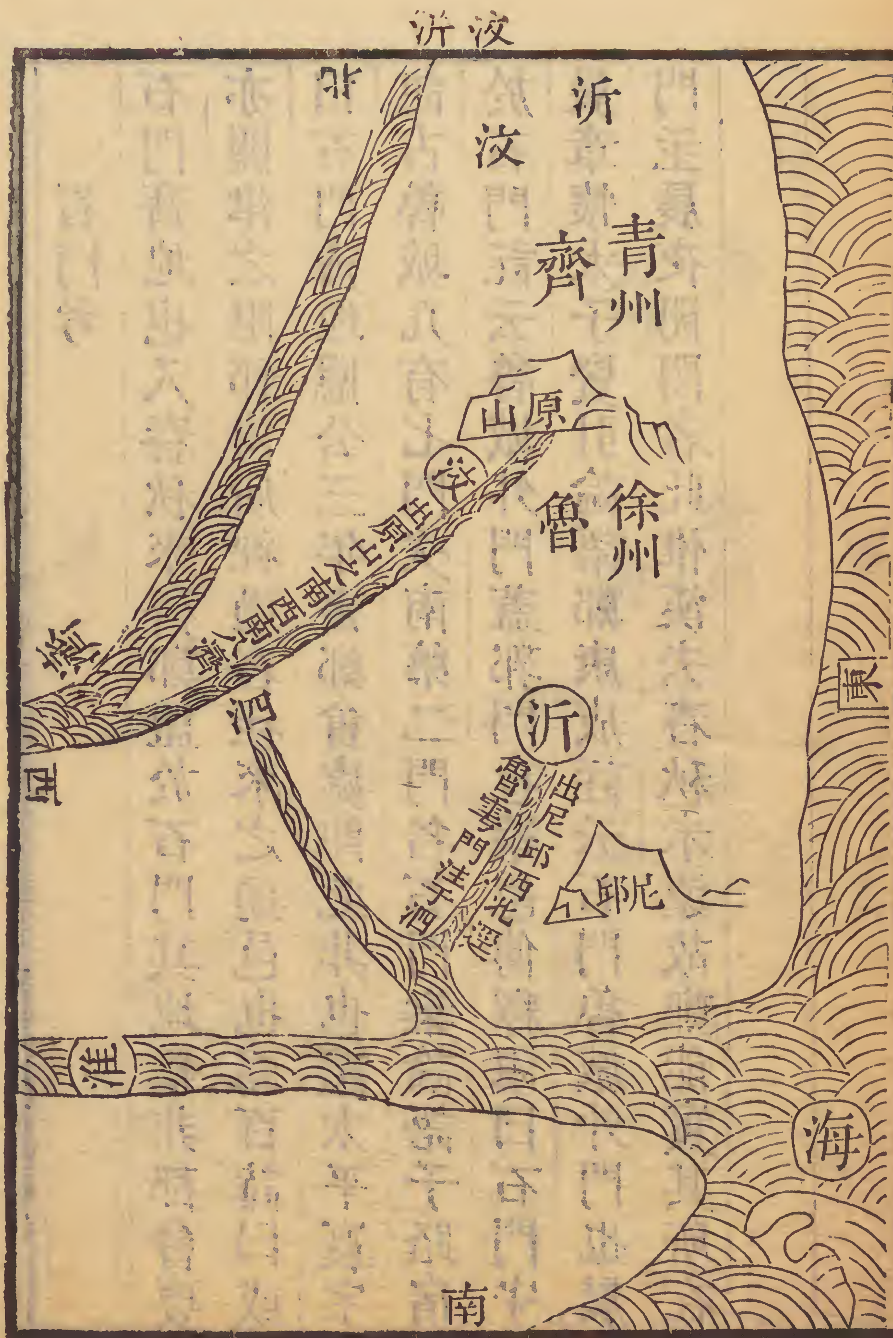 汶沂
北
沂
汶
青州
齊
原山
汶
出原山之南西南入濟
徐州
魯
濟
泗
沂
出尼邱西北逕
魯雩門注于泗
尼邱
東
西
淮
海
南